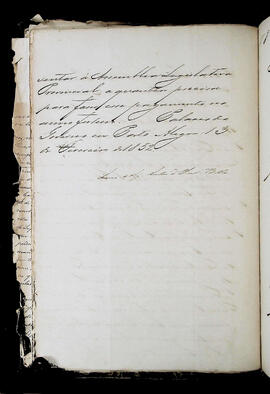 sentar á Assemblea Legislativa
Provincial, a quantia precisa
para fazer esse pagamento no
anno futuro. Palacio do
Governo em Porto Alegre 13
de Fevereiro de 1852